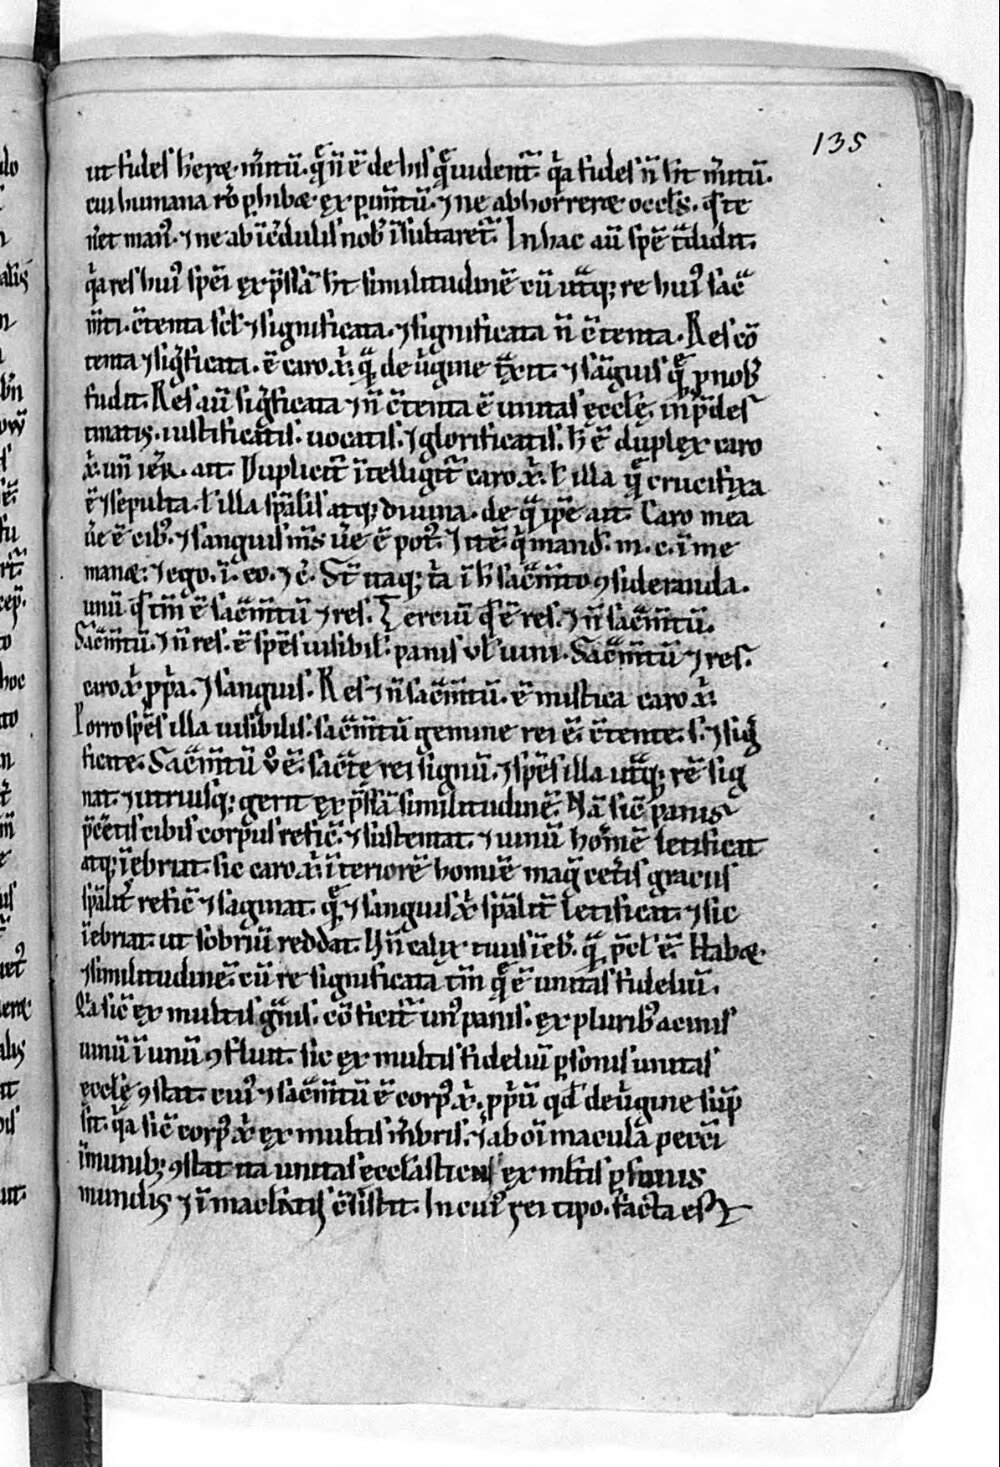 135
ut fides h̄eret m̄itū. q̄ n̄ ē de his q̄ uident̄. q̄a fides n̄ h̄t m̄itū.
cui humana rō p̄hibet exp̄im̄tū. ⁊ ne abhorreret ocl̄s. q̄ te
n̄et man⁹. ⁊ ne ab īc̄dulis nob̄ īsultaret̄. In hac aū spē t̄didit.
q̄a res hui⁹ sp̄ei exp̄ssā h̄t similitudinē cū utāq; re hui⁹ sac̄
m̄ti. c̄tenta scl̄ ⁊ significata. ⁊ significata n̄ c̄tenta. Res cō
tenta ⁊ sigficata. ē caro x̄. q̄ de ūgine t̄xit. ⁊ sāguis q̄ p nob̄
fudit. Res aū sigficata ⁊ n̄ c̄tenta ē unitas ęccl̄ę. in p̄des
tinatis. iustificatis. uocatis. ⁊ glorificatis. h̄ ē duplex caro
x̄. un̄ ier̄. ait. Duplicit̄ ītelligit̄ caro x̄. ł illa q̄ crucifixa
ē ⁊ sepulta. ł illa sp̄alis atq; diuina. de q̄ ip̄e ait. Caro mea
ūe ē cib⁹. ⁊ sanguis m̄s ūe ē pot⁹. ⁊ itē. q̄ mand̄. m. c. ī me
manet. ⁊ ego. ī. eo. ⁊ c̄. St̄ itaq; t̄a ī h̄ sac̄m̄to ꝯsideranda.
unū q̄ tm̄ ē sac̄m̄tū ⁊ res. Terciū q̄ ē res. ⁊ n̄ sac̄m̄tū.
Sac̄m̄tū. ⁊ n̄ res. ē sp̄es uisibil̄. panis ul̄ uini. Sac̄m̄tū ⁊ res.
caro x̄ p̄p̄a. ⁊ sanguis. Res ⁊ n̄ sac̄m̄tū. ē mistica caro x̄.
Porro sp̄es illa uisibilis. sac̄m̄tū gemine rei ē. c̄tente. s. ⁊ sigi
ficate. Sac̄m̄tū ū ē. sac̄tę rei signū. ⁊ sp̄es illa utāq; rē sig
nat. ⁊ utriusq; gerit exp̄ssā similitudinē. Nā sic̄ panis
p̄ cēt̄is cibis corpus refic̄. ⁊ sustentat. ⁊ uinū hoīmē letificat
atq; īebriat. sic caro x̄. īteriorē hominē maḡ cet̄is gracius
sp̄alit̄ refic̄ ⁊ saginat. q̄ ⁊ sanguis x̄ sp̄alit̄ letificat. ⁊ sic
īebriat. ut sobriū reddat. Un̄ calix tuus īeb̄. q̄ p̄cl̄ ē. Habet
⁊ similitudinē. cū re significata tm̄ q̄ ē unitas fideliū.
Q̄a sic̄ ex multis ḡnis. cōficit̄ un⁹ panis. ex plurib⁹ acinis
uinū ī unū ꝯfluit. sic ex multis fideliū p̄sonis unitas
ęccl̄ę ꝯstat. cui⁹ ⁊ sac̄m̄tū ē corp⁹ x̄. p̄p̄ū qd̄ de ūgine sūp̄
sit. q̄a sic̄ corp⁹ x̄ ex multis m̄bris. ⁊ ab oī macula peccī
īmunib; ꝯstat ita unitas ecclāstica ex ml̄tis p̄sonis
mundis ⁊ īmaclātis c̄sistit. In cui⁹ rei tipo. facta est